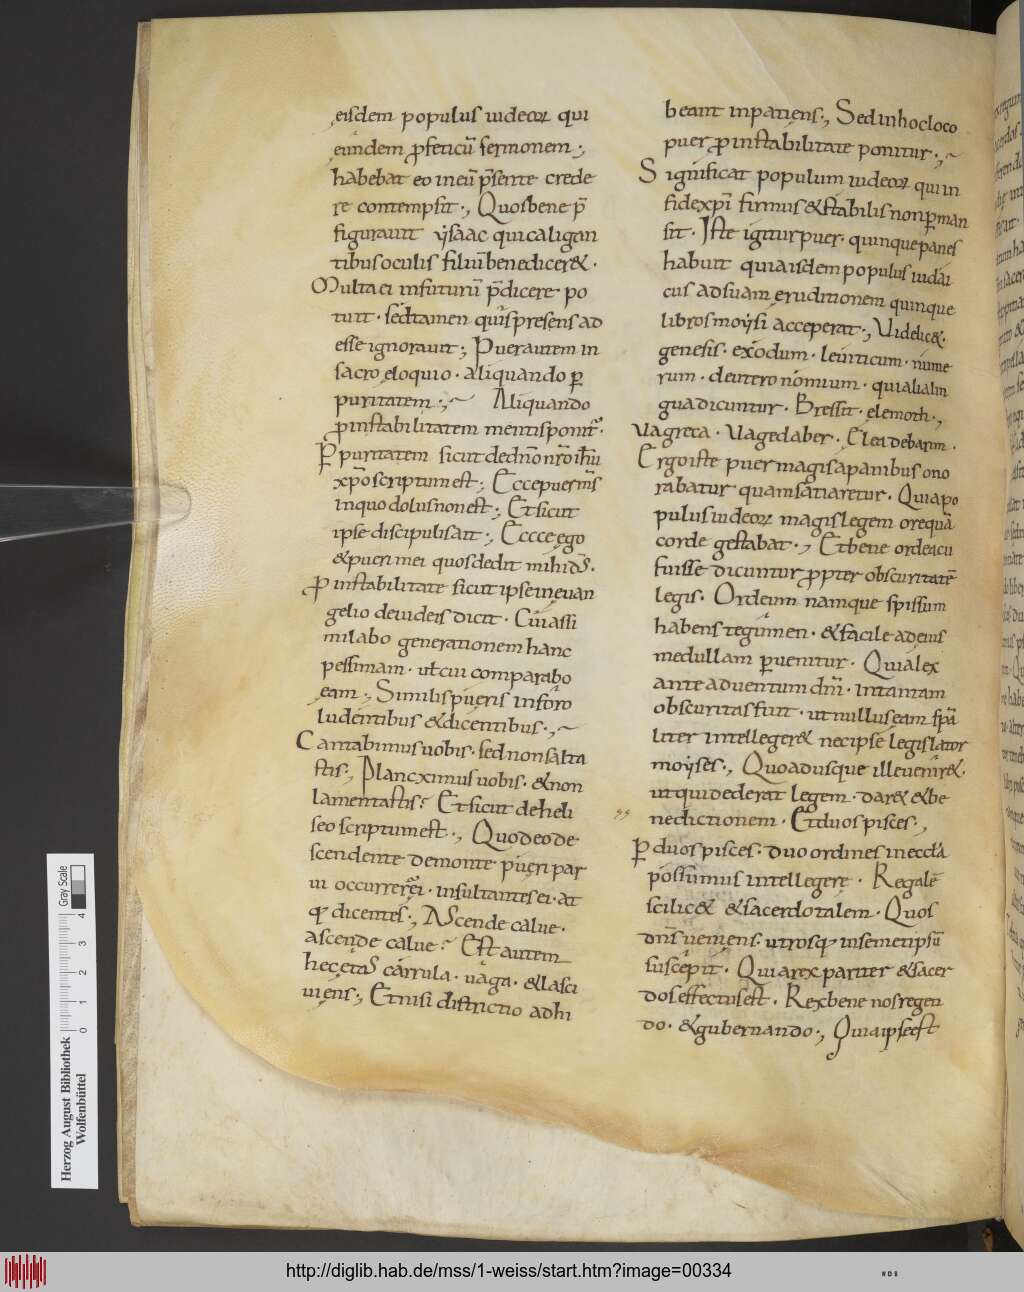 eisdem populus iudeoꝝ qui
eundem ꝓfeticū sermonem ;,
habebat eo ineū p̄sente crede
re contempsit ., Quos bene p̄
figurauit ẏsaac qui caligan
tibus oculis filiū benedicer& .
Multa ei in futurū p̄dicere po
tuit . sed tamen quis presens ad
esse ignorauit ;, Puer autem in
sacro eloquio . aliquando ꝑ
puritatem ;, Aliquando
ꝓ instabilitatem mentis ponit᷑ .
Ꝑ puritatem sicut de dn̄o nr̄o ih̄u
xp̄o scriptum est ;, Ecce puer m̄s
in quo dolus non est ;, Et sicut
ipse discipulis ait ;, Eccce ego
& pueri mei quos dedit mihi d̄s .
ꝓ instabilitate sicut ipse in euan
gelio de iudeis dicit . Cui assi
milabo generationem hanc
pessimam . ut cui comparabo
eam ;, Similis pueris in foro
ludentibus & dicentibus .,
Cantabimus uobis . sed non salta
stis ., Planximus uobis . & non
lamentastis : Et sicut de heli
seo scriptum est ., Quod eo de
scendente de monte pueri par
ui occurrer ei . insultantes ei . at
q; dicentes ., Ascende calue .
ascende calue : Est autem
hec etas carrula . uaga . & lasci
uiens ;, Et nisi districtio adhi
beant inpatiens ;, Sed in hoc loco
puer ꝓ instabilitate ponitur ;,
Significat populum iudeoꝝ qui in
fide xp̄i firmus & stabilis non ꝑman
sit . Iste igitur puer . quinque panes
habuit quia isdem populus iudai
cus ad suam eruditionem quinque
libros moẏsi acceperat ., Videlic& .
genesis . exodum . leuiticum . nume
rum . deuteronomium . qui alia lin
gua dicuntur . Bresit . elemoth .,
Vagreta . Vagedaber . Elea debarim .
Ergo iste puer magis a panibus ono
rabatur quam satiaretur . Quia po
pulus iudeoꝝ magis legem ore quā
corde gestabat ., Et bene ordeacu
fuisse dicuntur ꝓpter obscuritatē
legis . Ordeum namque spissum
habens tegumen . & facile ad eius
medullam ꝑuenitur . Quia lex
ante aduentum dn̄i . in tantam
obscuritas fuit . ut nullus eam sp̄a
liter intelleger& nec ipse legislator
moẏses ., Quo adusque ille uenir& .
ut qui dederat legem . dar& & be
nedictionem . Et duos pisces .,
Ꝑ duos pisces . duo ordines in eccl̄a
possumus intellegere . Regalē
scilic& & sacerdotalem . Quos
dn̄s ueniens . utrosq; in semetipsū
suscepit . Quia rex pariter & sacer
dos effectus est . Rex bene nos regen
do . & gubernando ., Quia ipse est
Herzog August Bibliothek
Wolfenbüttel
Gray Scale
0 1 2 3 4
http://diglib.hab.de/mss/1-weiss/start.htm?image=00334